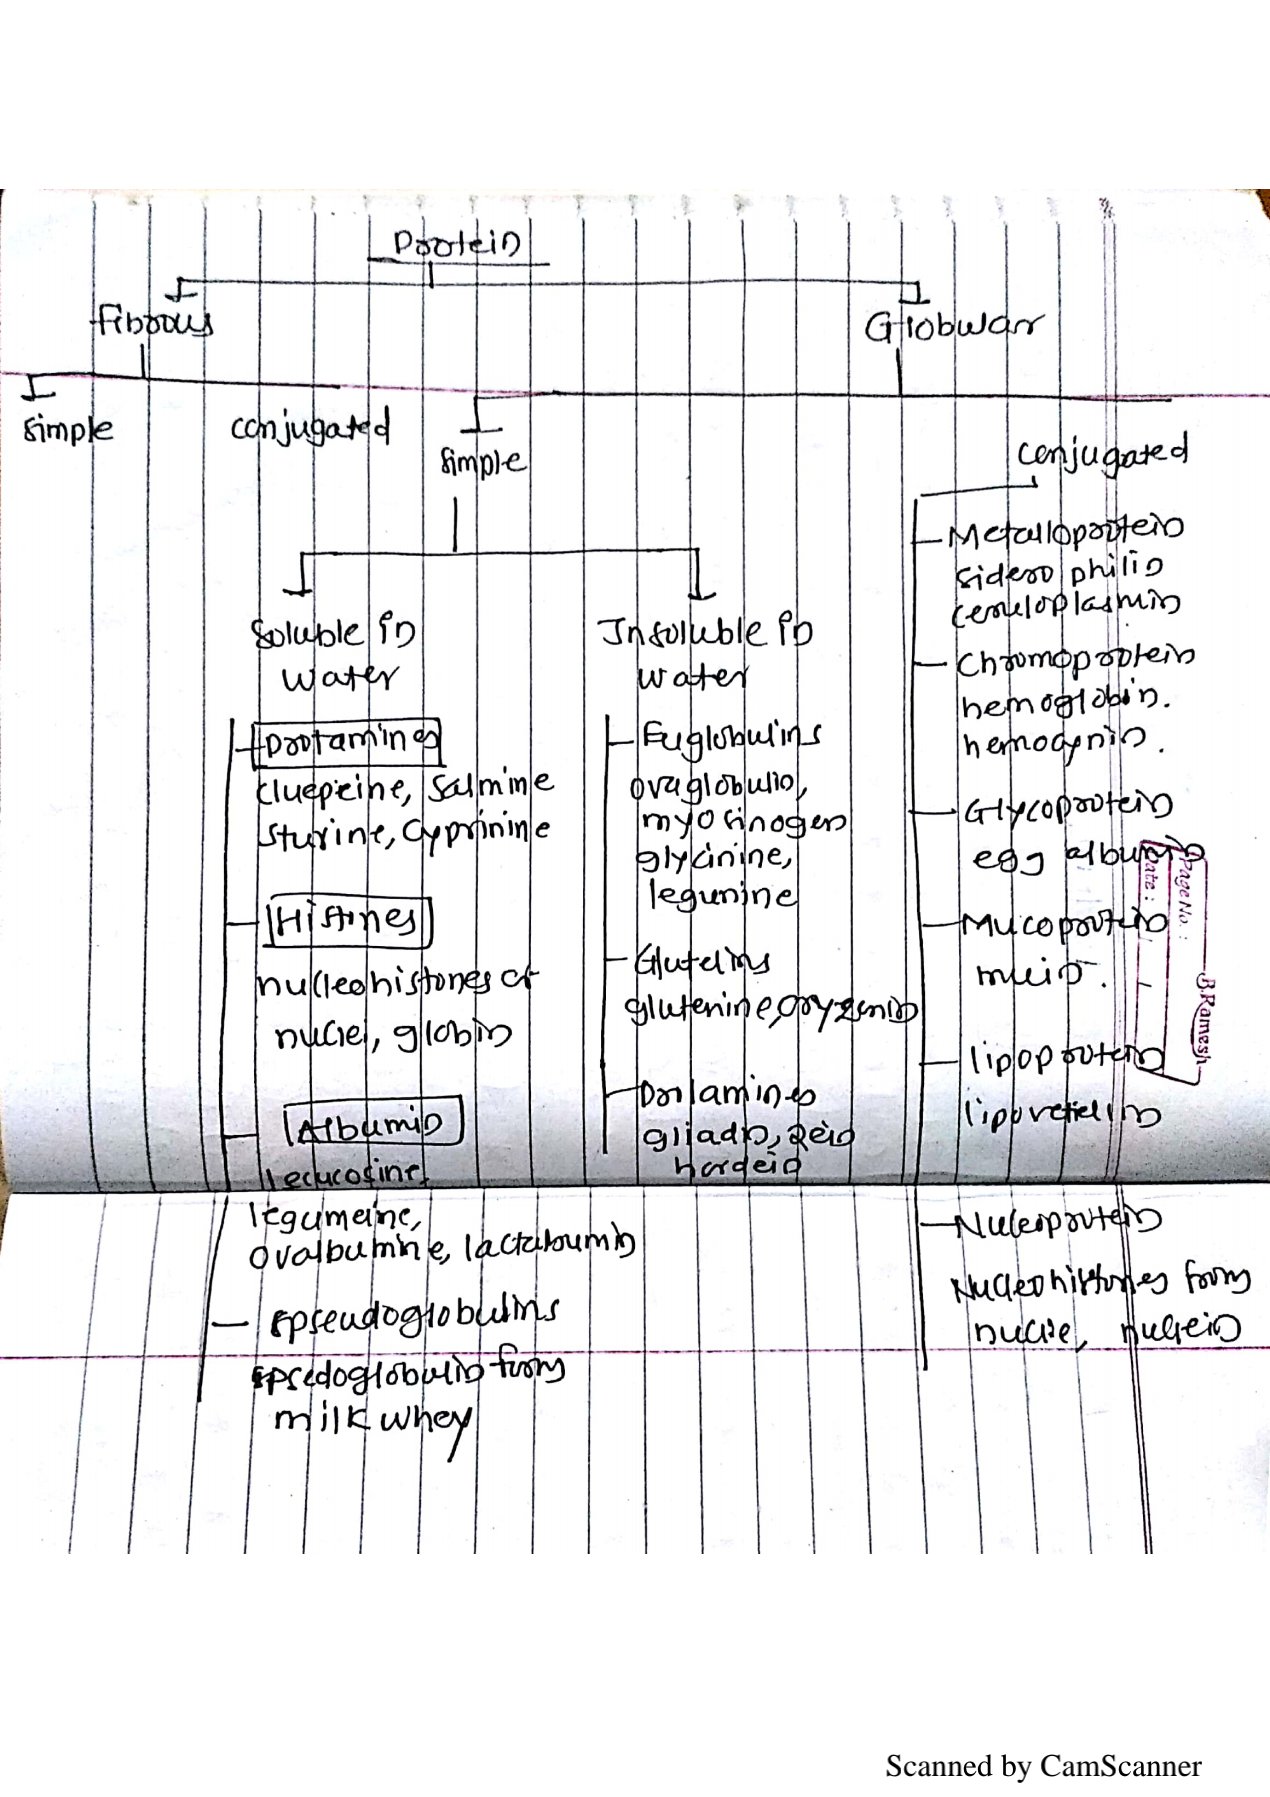 Protein
Fibrous
Globular
simple
conjugated
simple
conjugated
Soluble in
water
Protamines
clupeine, Salmine
sturine, cyprinine
Histones
nucleohistones of
nuclei, globin
Albumin
leucosine,
legumeline,
ovalbumine, lactalbumin
pseudoglobulins
psedoglobulin from
milk whey
Insoluble in
water
Euglobulins
ovaglobulin,
myosinogen
glycinine,
legunine
Glutelins
glutenine, oryzenin
Prolamines
gliadin, zein
hordein
Metalloprotein
siderophilin
ceruloplasmin
Chromoprotein
hemoglobin.
hemocynin.
Glycoprotein
egg albumin
Mucoprotein
mucin.
lipoprotein
lipovitellin
Nucleoprotein
Nucleohistones from
nuclie, nuclein
Page No. :
Date :
B.Ramesh
Scanned by CamScanner